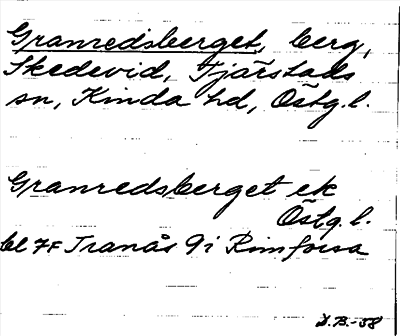 Granredsberget, berg,
Skedevid, Tjärstads
sn, Kinda hd, Östg.l.
Granredsberget ek
Östg.l.
bl 7F Tranås 9i Rimforsa
D.B.-58